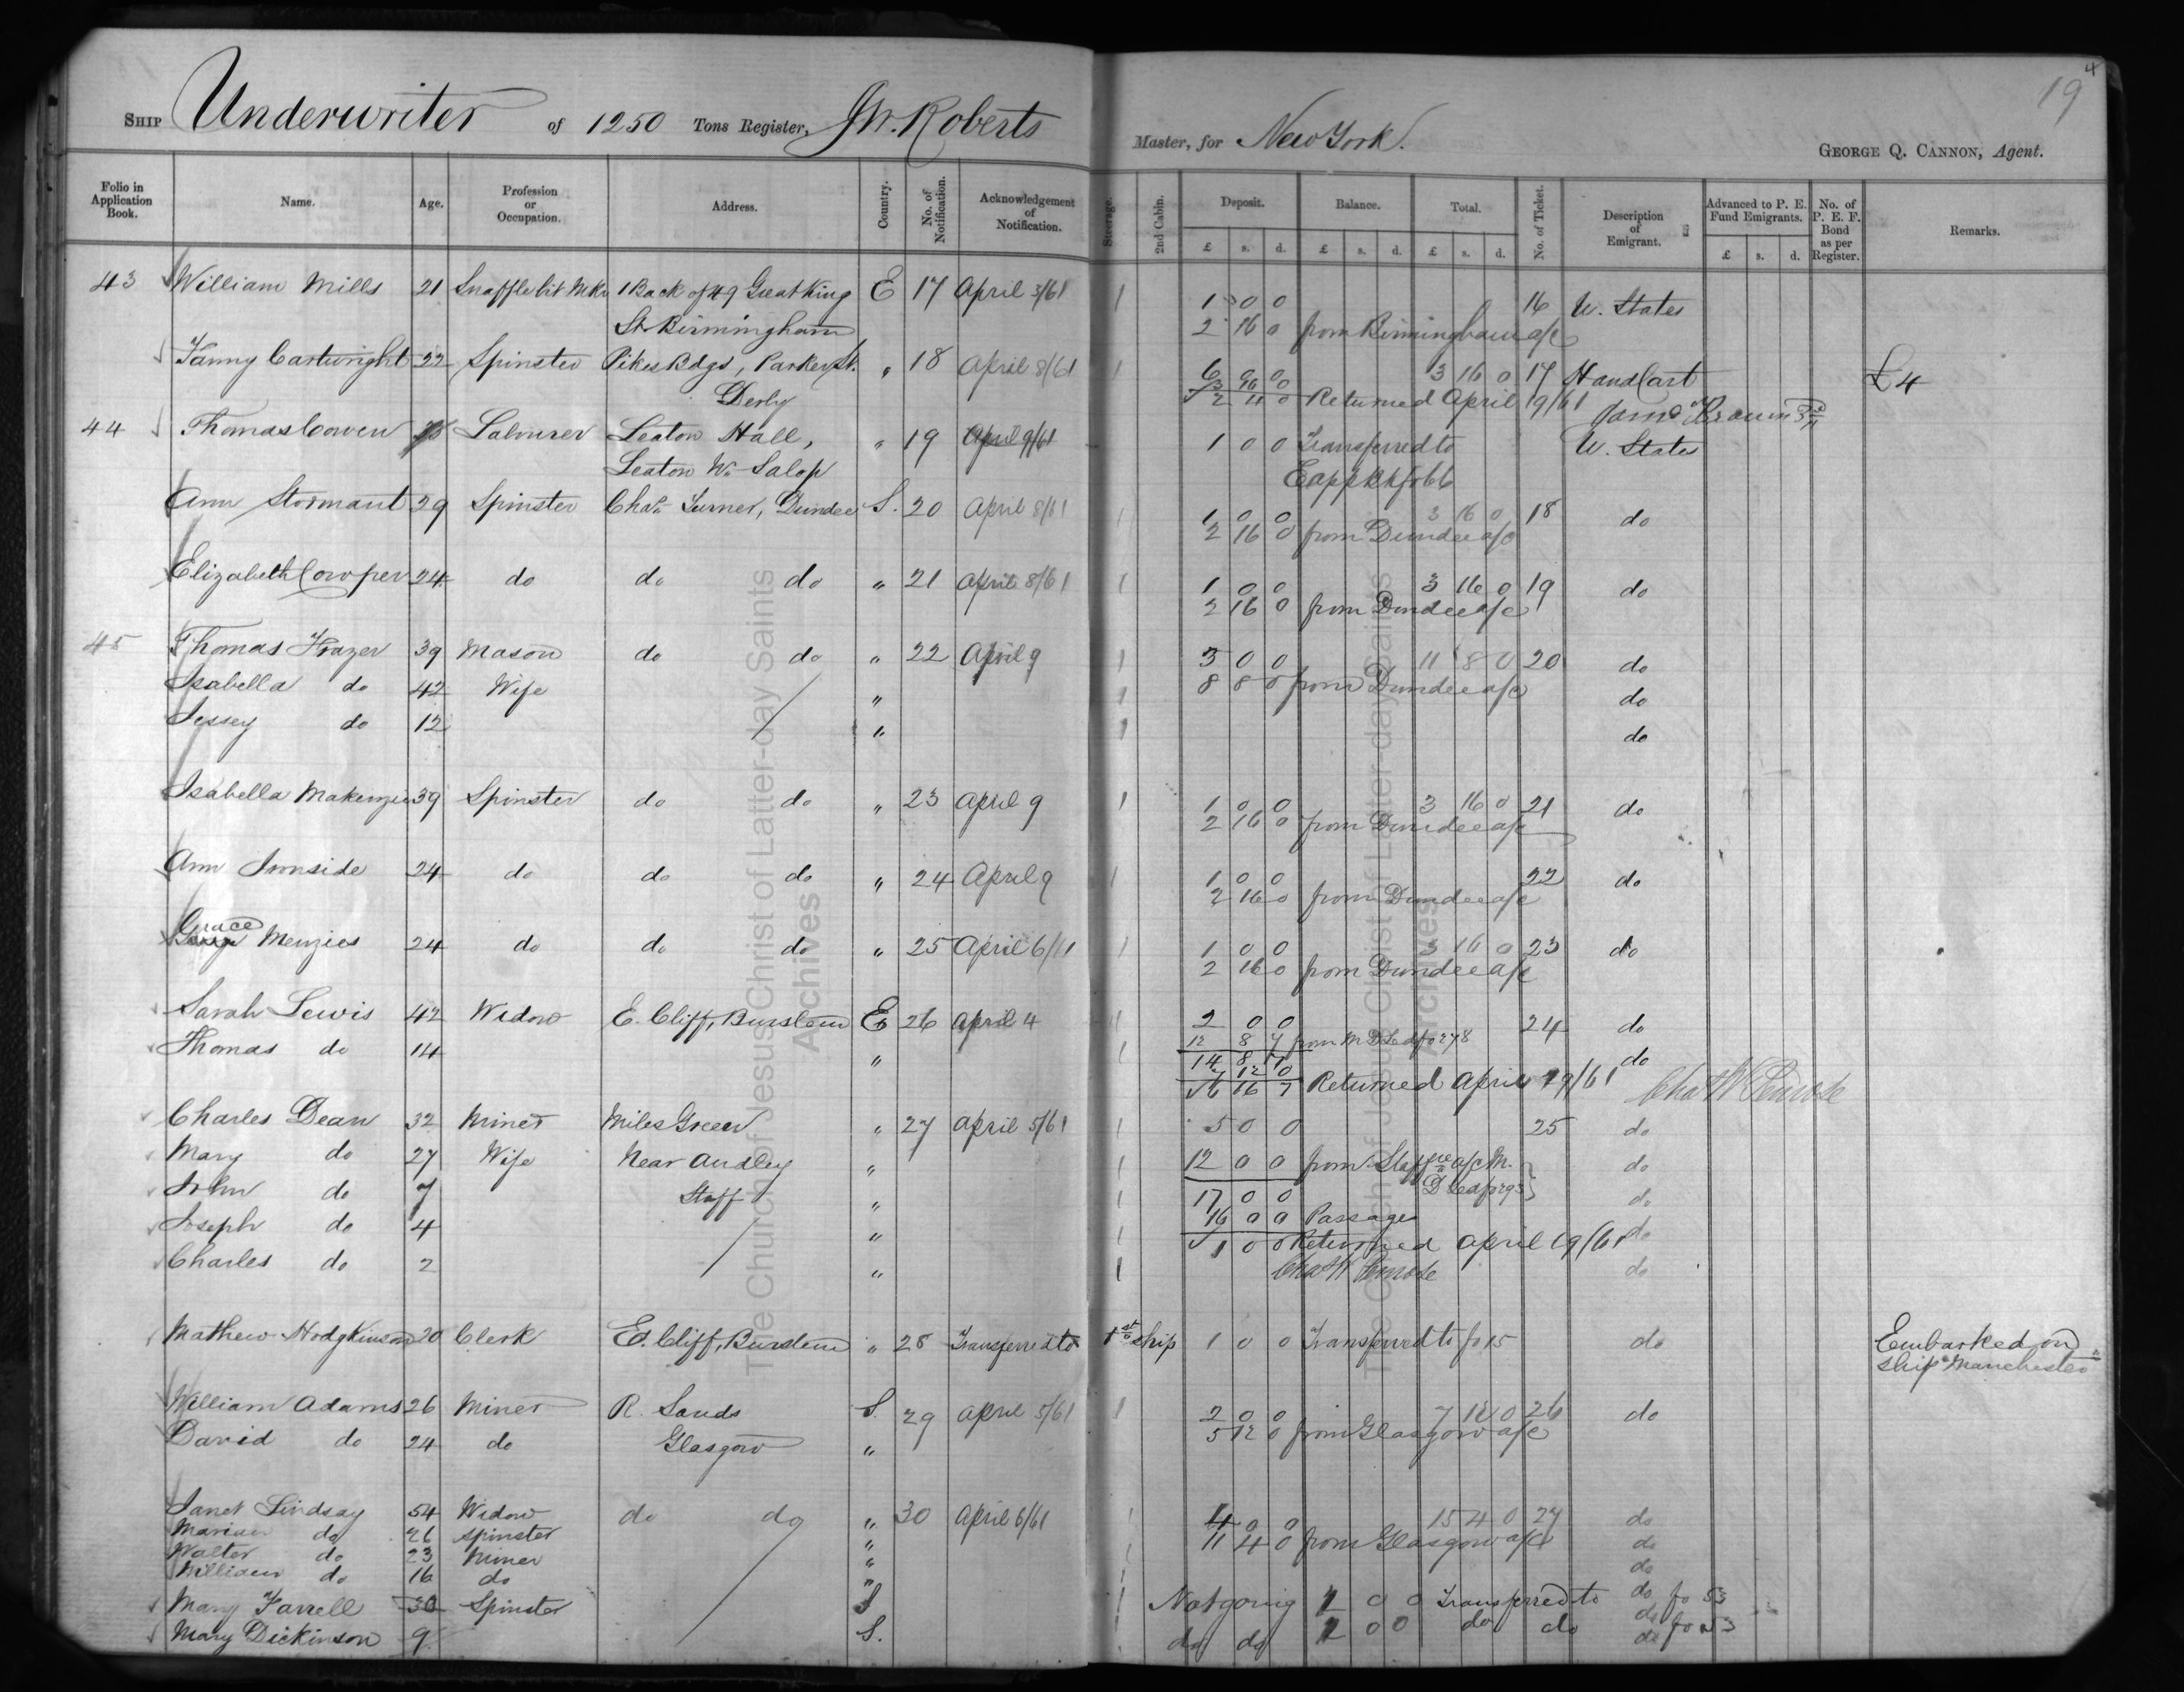 19 4
SHIP Underwriter of 1250 Tons Register, J.W. Roberts Master, for New York. GEORGE Q. CANNON, Agent.
Folio in Application Book. Name. Age. Profession or Occupation. Address. Country. No. of Notification. Acknowledgement of Notification. Steerage. 2nd Cabin. Deposit. Balance. Total. No. of Ticket. Description of Emigrant. Advanced to P. E. Fund Emigrants. No. of P. E. F. Bond as per Register. Remarks.
£ s. d. £ s. d. £ s. d. £ s. d.
43 William Mills 21 Snaffle bit Mkr 1 Back of 49 Great King E 17 April 3/61 1 1 0 0 16 U. States
St. Birmingham 2 16 0 from Birmingham a/c
Fanny Cartwright 22 Spinster Pikes Bdgs, Parker St. " 18 April 8/61 1 6 0 0 3 16 0 17 Hand Cart £4
3 16 0
Derby 2 4 0 Returned April 19/61
44 Thomas Cowen Labourer Leaton Hall, " 19 April 9/61 1 0 0 Transferred to U. States
Leaton Wn Salop E app Bk fo 66
Ann Stormant 29 Spinster Chas. Turner, Dundee S. 20 April 8/61 1 1 0 0 3 16 0 18 do
2 16 0 from Dundee a/c
Elizabeth Cowper 24 do do do " 21 April 8/61 1 1 0 0 3 16 0 19 do
2 16 0 from Dundee a/c
45 Thomas Frazer 39 Mason do do " 22 April 9 1 3 0 0 11 8 0 20 do
Isabella do 42 Wife " 1 8 8 0 from Dundee a/c do
Jessey do 12 " 1 do
Isabella Makenzie 39 Spinster do do " 23 April 9 1 1 0 0 3 16 0 21 do
2 16 0 from Dundee a/c
Ann Ironside 24 do do do " 24 April 9 1 1 0 0 22 do
2 16 0 from Dundee a/c
Grace Menzies 24 do do do " 25 April 6/61 1 1 0 0 3 16 0 23 do
2 16 0 from Dundee a/c
Sarah Lewis 42 Widow E. Cliff, Burslem E 26 April 4 1 2 0 0 24 do
12 8 7 from M D Led fo 278
Thomas do 14 " 1 14 8 7 do
7 12 0
6 16 7 Returned April 19/61 Chas W Penrose
Charles Dean 32 Miner Miles Green " 27 April 5/61 1 5 0 0 25 do
Mary do 27 Wife Near Audley " 1 12 0 0 from Staffre a/c M. do
D Led fo 293
John do 7 Staff " 1 17 0 0 do
16 0 0 Passages
Joseph do 4 " 1 1 0 0 Returned April 19/61 do
Charles do 2 " 1 Chas W Penrose do
Mathew Hodgkinson 20 Clerk Ed. Cliff, Burslem " 28 Transferred to 1st ship 1 0 0 Transferred to fo 15 do Embarked on
ship "Manchester"
William Adams 26 Miner R. Sands S. 29 April 5/61 1 2 0 0 7 12 0 26 do
David do 24 do Glasgow " 5 12 0 from Glasgow a/c
Janet Lindsay 54 Widow do do " 30 April 6/61 1 4 0 0 15 4 0 27 do
Marian do 26 Spinster " 11 4 0 from Glasgow a/c do
Walter do 23 Miner " do
William do 16 do " do
Mary Farrell 30 Spinster S Not going 1 0 0 Transferred to do fo 53
Mary Dickinson 9 S. do do 1 0 0 do do do fo 53
The Church of Jesus Christ of Latter-day Saints
Archives
The Church of Jesus Christ of Latter-day Saints
Archives